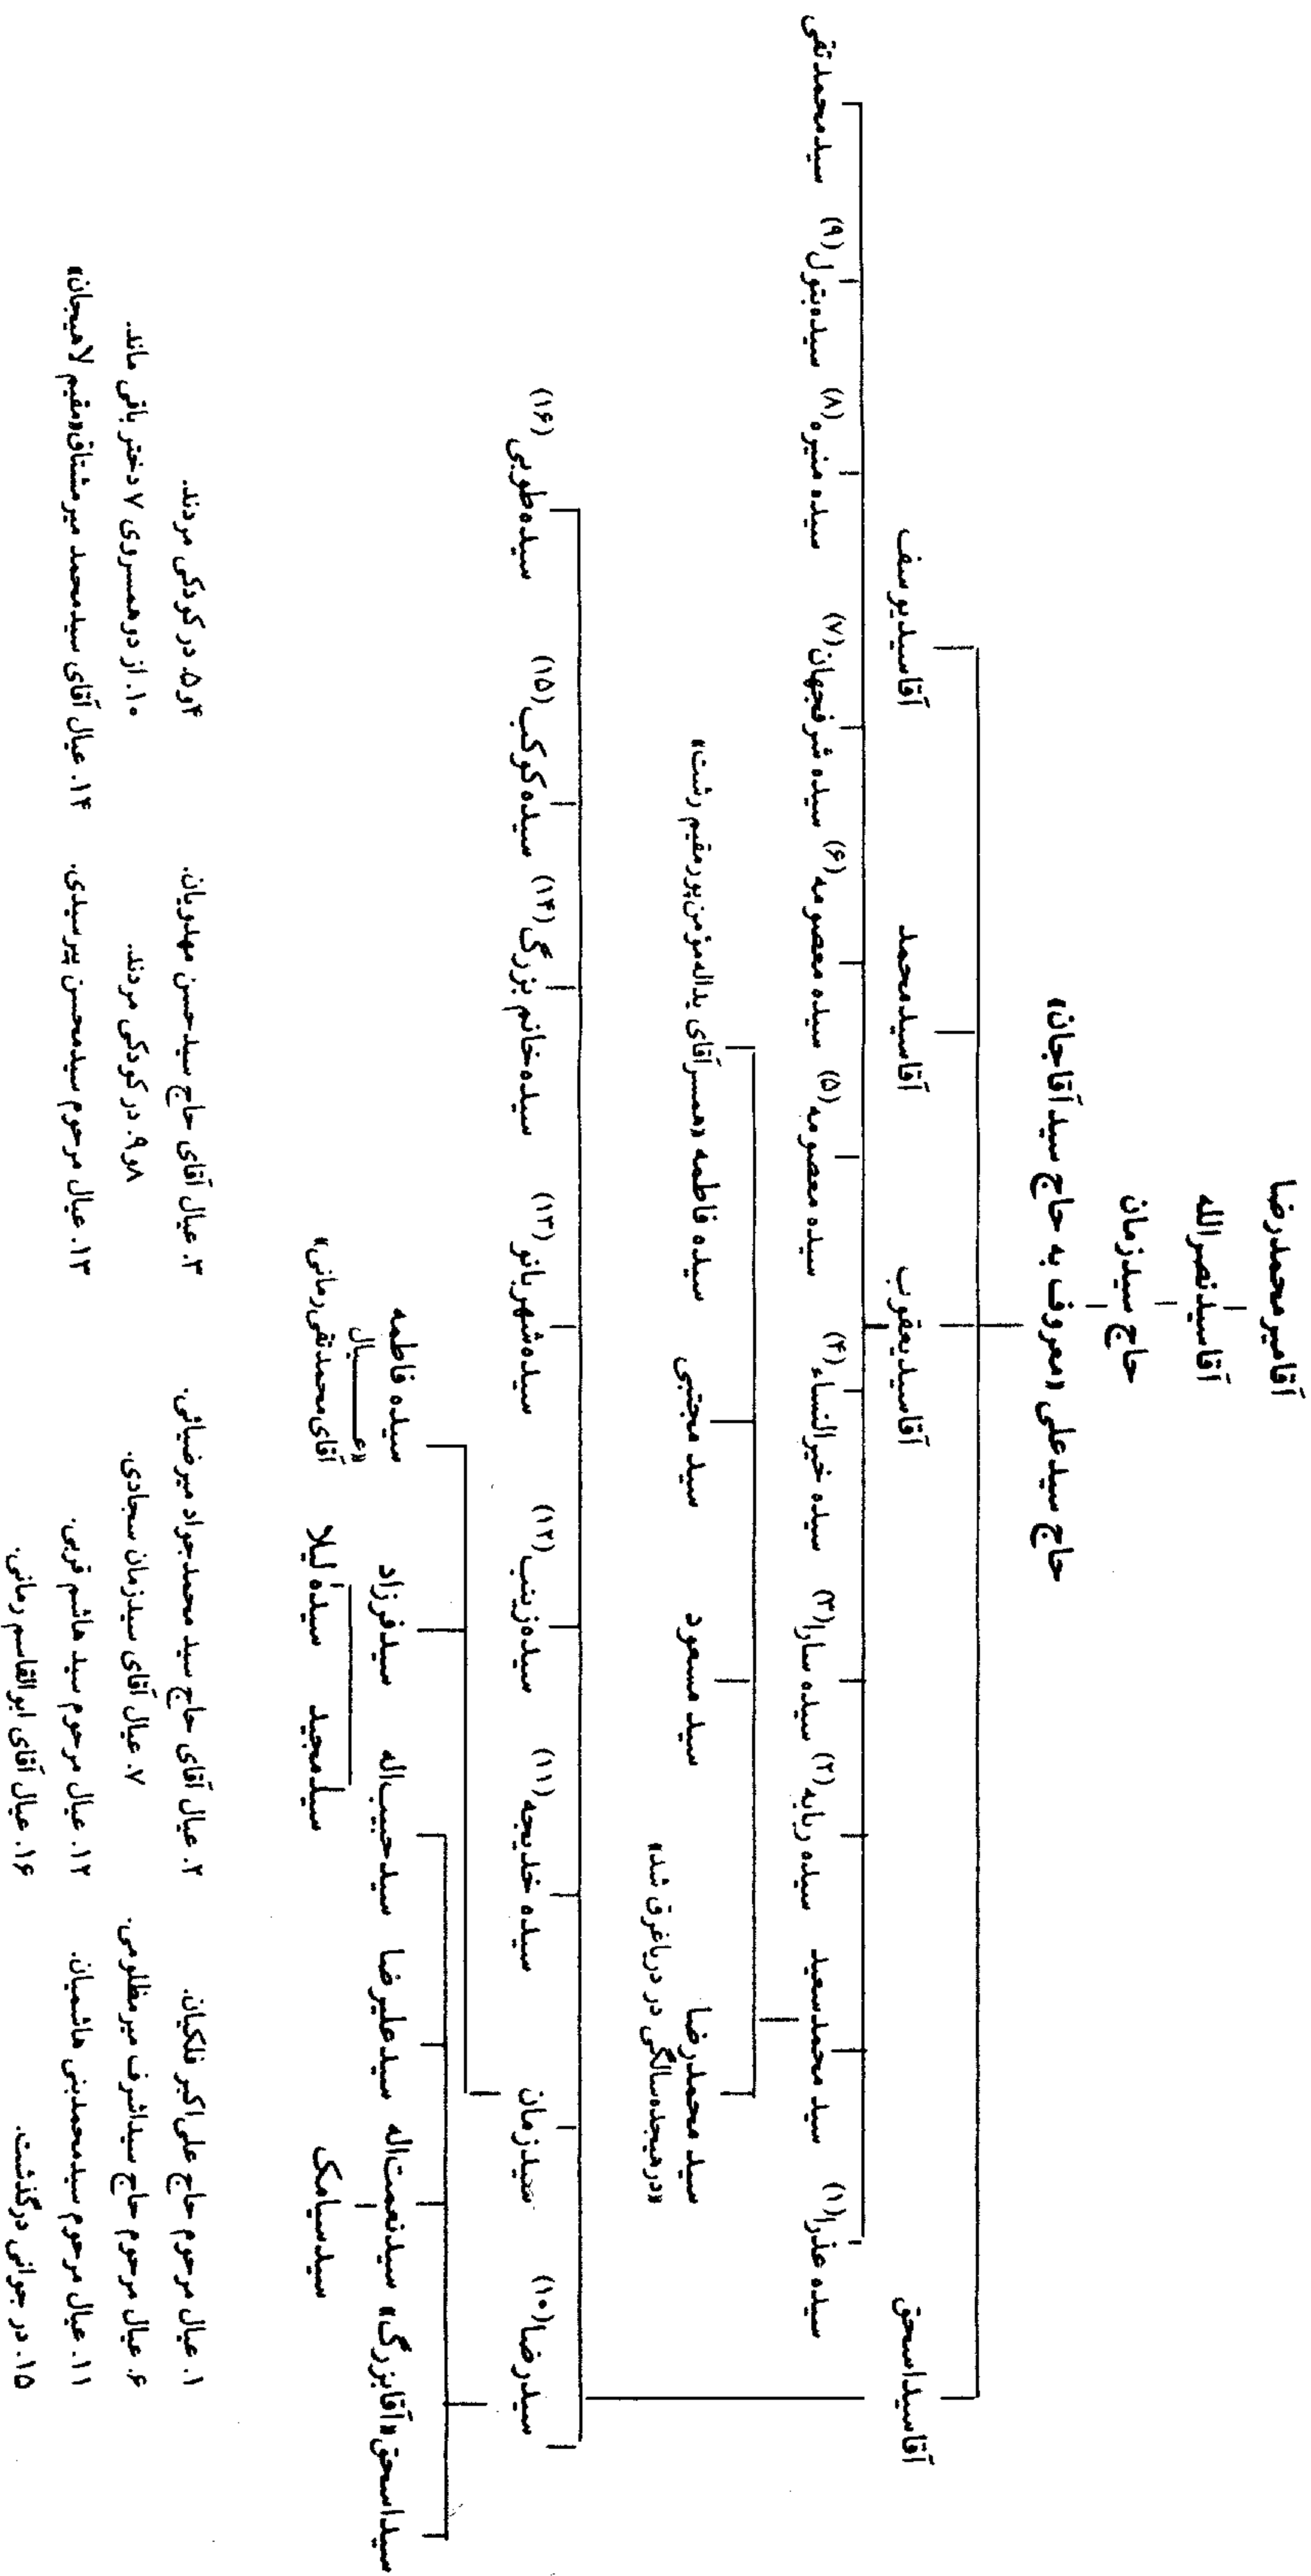 آقامیر محمدرضا
آقاسید نصرالله
حاج سیدزمان
حاج سیدعلی «معروف به حاج سید آقاجان»
آقاسیداسحق آقاسیدیعقوب آقاسیدمحمد آقاسیدیوسف
سیده عذرا(۱) سید محمدسعید سیده ربابه(۲) سیده سارا(۳) سیده خیرالنساء(۴) سیده معصومه(۵) سیده معصومه(۶) سیده شرفجهان(۷) سیده منیره(۸) سیده بتول(۹) سیدمحمدتقی
سید محمدرضا سید مسعود سید مجتبی سیده فاطمه «همسر آقای یداله مؤمن‌پور مقیم رشت»
«در هیجده سالگی در دریا غرق شد»
سیدرضا(۱۰) سیدزمان سیده خدیجه(۱۱) سیده زینب(۱۲) سیده شهربانو(۱۳) سیده خانم بزرگ(۱۴) سیده کوکب(۱۵) سیده طوبی(۱۶)
سیداسحق «آقابزرگ» سیدنعمت‌اله سیدعلیرضا سیدحبیب‌اله سیدفرزاد سیده فاطمه
«عیال
آقای محمدتقی رمانی»
سیدسیامک سیدمجید سیده لیلا
۱. عیال مرحوم حاج علی‌اکبر فلکیان. ۲. عیال آقای حاج سید محمدجواد میرضیائی. ۳. عیال آقای حاج سیدحسن مهدویان. ۴و۵. در کودکی مردند.
۶. عیال مرحوم حاج سیداشرف میرمظلومی. ۷. عیال آقای سیدزمان سجادی. ۸و۹. در کودکی مردند. ۱۰. از دو همسر وی ۷ دختر باقی ماند.
۱۱. عیال مرحوم سیدمحمد بنی هاشمیان. ۱۲. عیال مرحوم سید هاشم قربی. ۱۳. عیال مرحوم سیدمحسن پیرسیدی. ۱۴. عیال آقای سیدمحمد میرمشتاق «مقیم لاهیجان»
۱۵. در جوانی درگذشت. ۱۶. عیال آقای ابوالقاسم رمانی.